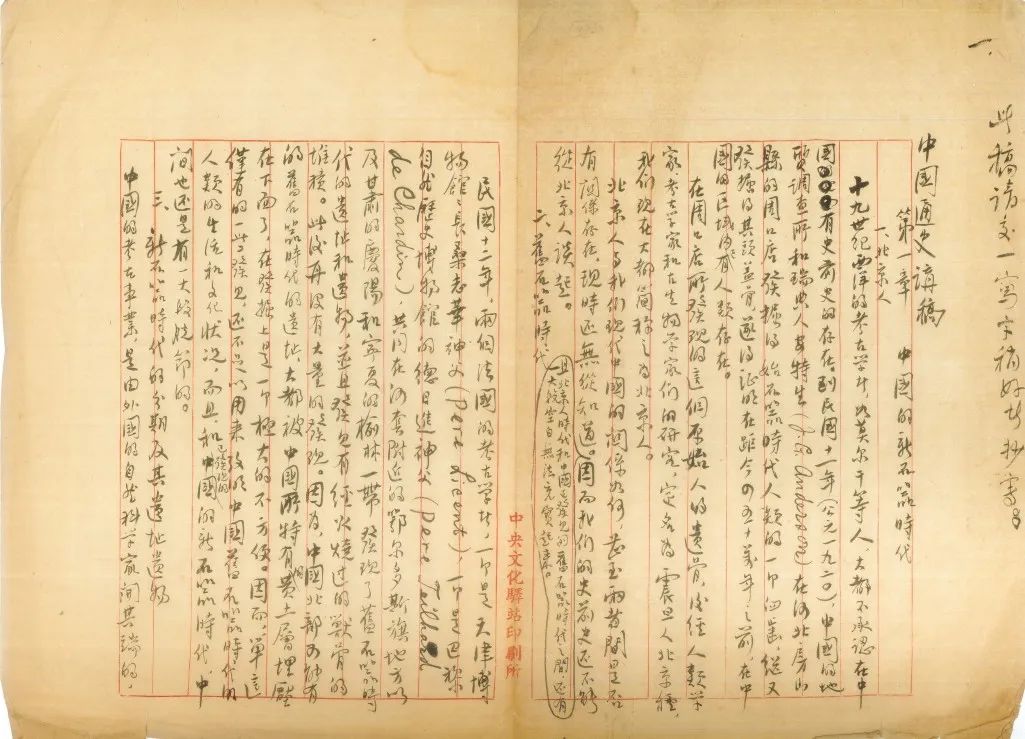 一、
此稿请交一写字稍好者抄寫
中国通史講稿
第一章 中国的新石器時代
一、北京人
十九世紀西洋的考古学者,如莫尔干等人,大都不承認在中
国有史前史的存在。到民国十一年(公元一九二〇),中国的地
質調查所和瑞典人安特生(J. G. Anderson)在河北房山
縣的周口店發掘得始石器時代人類的一个臼齒,繼又
發掘得其頭蓋骨,遂得証明在距今四五十萬年之前,在中
国的区域内就有人類存在。
在周口店所發現的這個原始人的遺骨,後經人類学
家、考古学家和古生物学家們的研究,定名為震旦人北京種,
我們現在大都簡称之為北京人。
北京人与我們現代中國的関係如何,甚至兩者間是否
有関係存在,現時还無從知道。因而我們的史前史还不能
從北京人談起。
且北京人時代和中国已發見的舊石器時代之間,还有
一大段空白無法充實起來。
二、舊石器時代
中央文化驛站印刷所
民國十二年,兩個法國的考古学者,一个是天津博
物館長桑志華神父(Pere Licent),一个是巴黎
自然歷史博物館的德日進神父(Pere Teilhard
de Chardin),共同在河套附近的鄂尔多斯旗地方以
及甘肅的慶陽和寧夏的榆林一帶發現了舊石器時
代的遺址和遺物,並且發見有經火燒过的獸骨的
堆積。此後再没有大量的發現。因為,中國北部的所有
的舊石器時代的遺址,大都被中國所特有的黄土層埋壓
在下面了,在發掘上是一个極大的不方便。因而單這
僅有的一些發見,还不足以用来説明中国舊石器時代的
人類的生活和文化狀况,而且和已發現的中國的新石器時代,中
間也还是有一大段脱節的。
三、新石器時代的分期及其遺址遺物
中國的考古事業,是由外國的自然科学家開其端的,